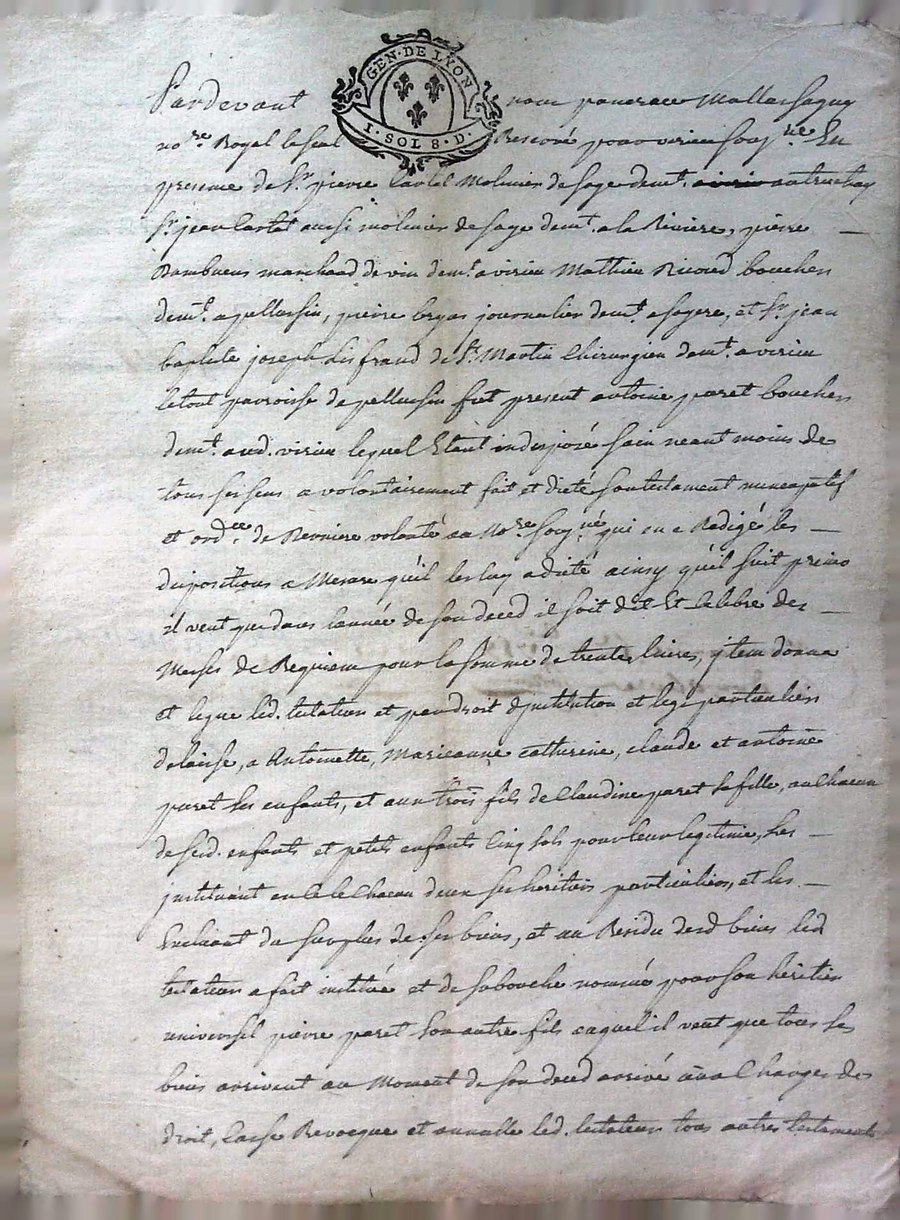 GEN·DE LYON
I·SOL 8·D·
Pardevant nous pancrace Mallassagny
no.re Royal Reservé pour virieu sousg.né En
presence de S.r pierre Molinier de soye dem.t
S.r jean aussi molinier de soye dem.t a la Riviere, pierre
marchand de vin dem.t a virieu Mathieu Ricoud boucher
dem.t a pellussin, pierre journalier dem.t a, et S.r jean
baptiste joseph Lisfrand de S.t Martin Chirurgien dem.t a virieu
le tout parroisse de pellussin fut present antoine paret boucher
dem.t aud. virieu lequel Etant indisposé sain neant moins de
tous ses sens a volontairement fait et dicté son testament nuncupatif
et ord.ce de derniere volonté au No.re sousg.né qui en a Redigé les
dispositions a Mesure qu'il les luy a dicté ainsy qu'il suit primo
il veut que dans l'année de son deced il soit dit Et Celebre des
Messes de Requiem pour la somme de trente livres, jtem donne
et legue led. testateur et par droit d'jnstitution et legs particulier
delaisse, a Antoinette, Marieanne, catherine, claude et antoine
paret ses enfants, et aux trois fils de Claudine paret sa fille, au Chacun
de sesd. enfants et petits enfants Cinq sols pour leur legitime, Les
jnstituant en ce le Chacun deux ses heritiers particuliers, et les
Excluant du surplus de ses biens, et au Residu desd biens led
testateur a fait institué et de sa bouche nommé pour son heritier
universel pierre paret son autre fils auquel il veut que tous ses
biens arrivent au Moment de son deced arrivé aux Charges de
droit, Casse Revocque et annulle led. testateur tous autres testaments